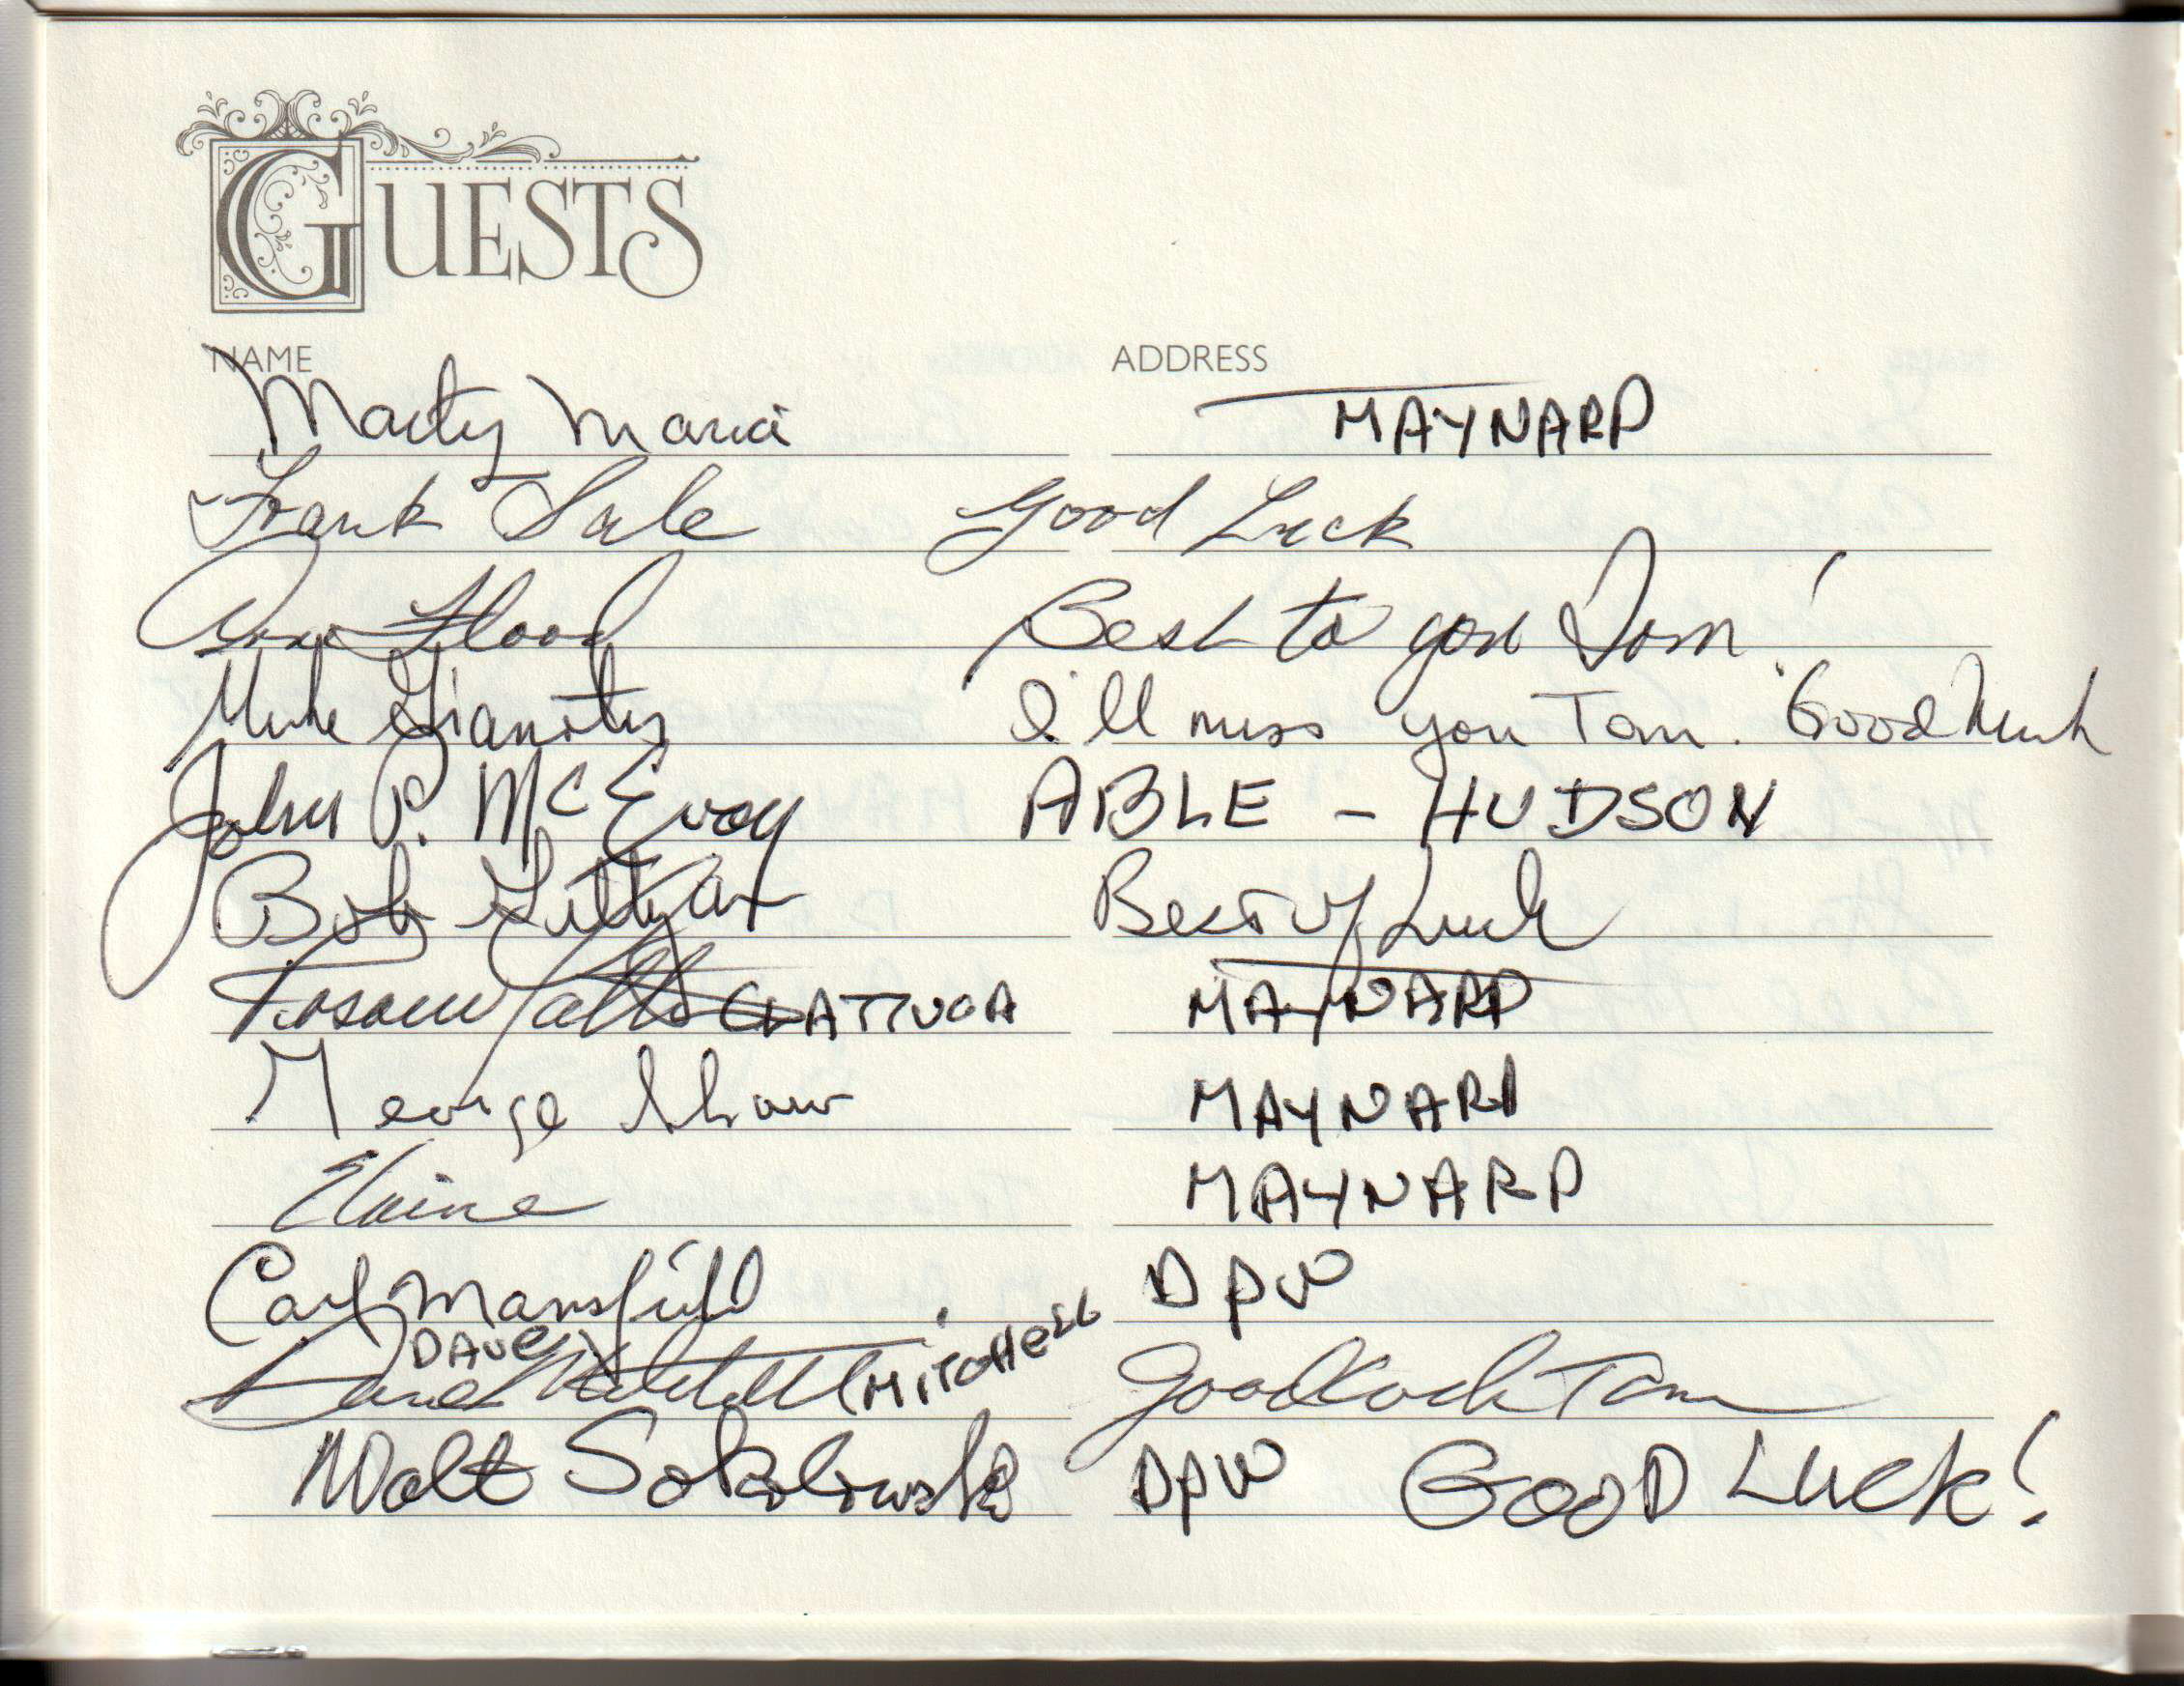 GUESTS
NAME ADDRESS
Marty Maria MAYNARD
Frank Sale Good Luck
Flood Best to you Tom!
Mike Gianotis I'll miss you Tom. Good Luck
John P. McEvoy ABLE - HUDSON
Bob Best of Luck
LATTUCA MAYNARD
George Shaw MAYNARD
Elaine MAYNARD
Carl Mansfield DPW
DAVE (MITCHELL Good Luck Tom
Walt Sokolowski DPW GOOD LUCK!